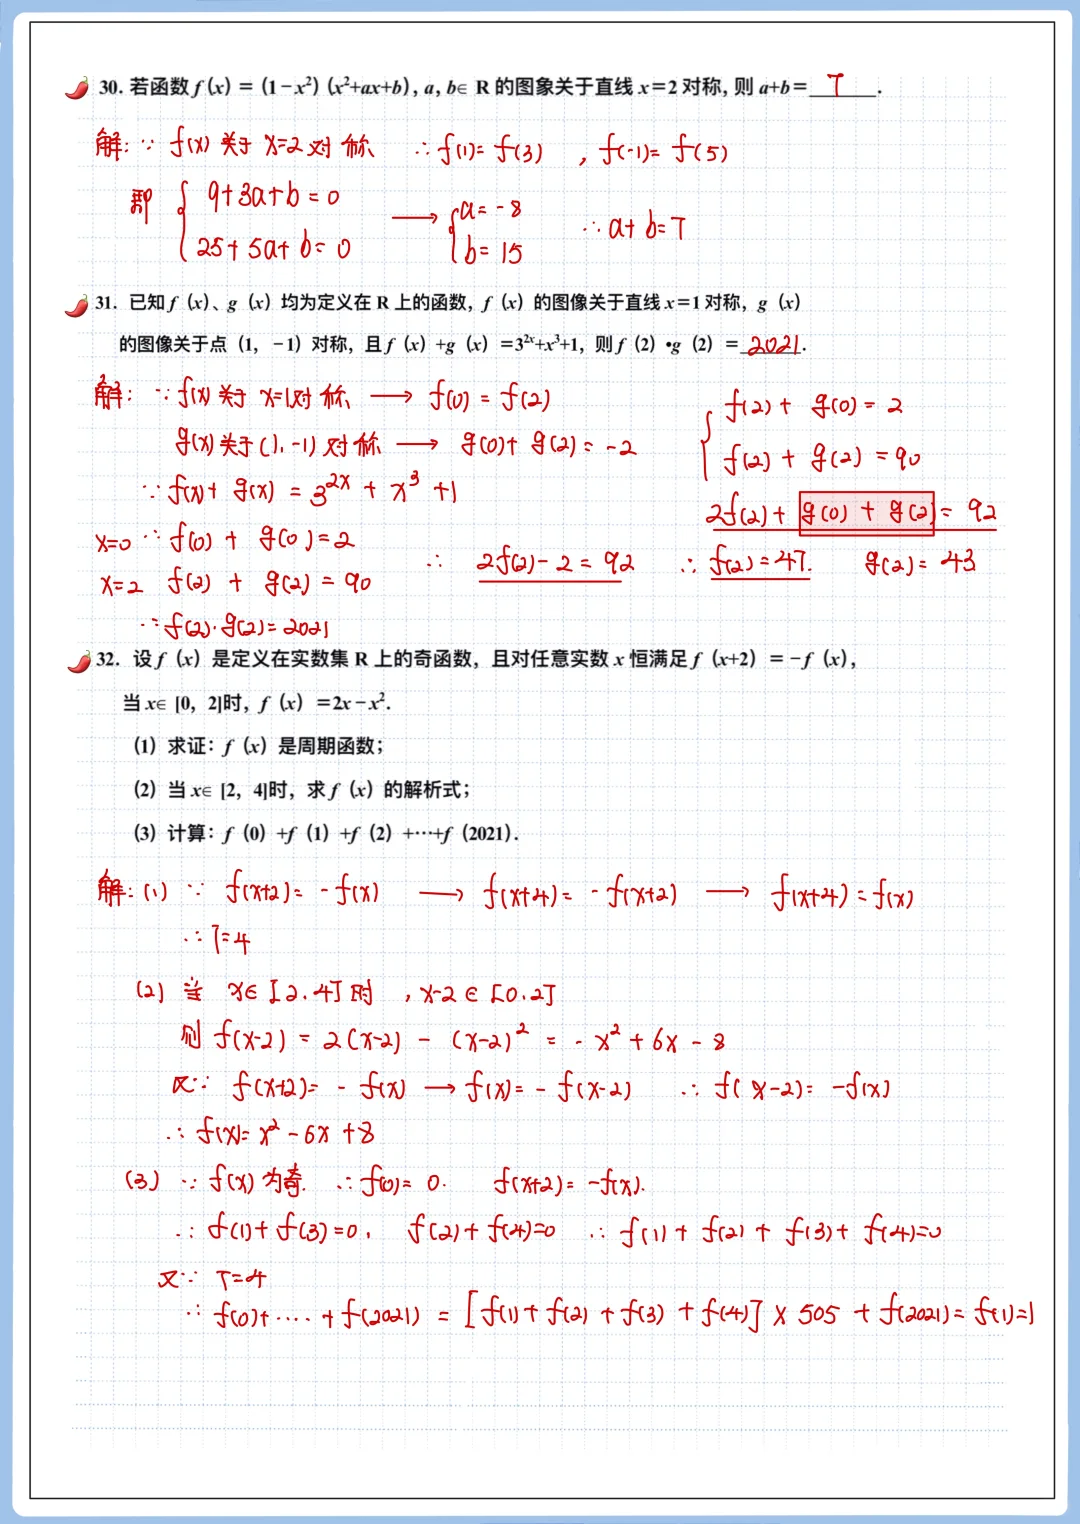 30. 若函数 f (x) = (1-x²) (x²+ax+b), a, b∈ R 的图象关于直线 x=2 对称, 则 a+b= 7 .
解: ∵ f(x) 关于 x=2 对称 ∴ f(1)= f(3) , f(-1)= f(5)
即 { 9+3a+b=0
25+5a+b=0 → { a=-8
b=15 ∴ a+b=7
31. 已知 f (x)、g (x) 均为定义在 R 上的函数, f (x) 的图像关于直线 x=1 对称, g (x)
的图像关于点 (1, -1) 对称, 且 f (x) +g (x) =3²ˣ+x³+1, 则 f (2) •g (2) = 2021.
解: ∵ f(x) 关于 x=1对称 → f(0) = f(2)
g(x) 关于 (1.-1) 对称 → g(0)+ g(2) = -2
∵ f(x)+ g(x) = 3²ˣ + x³ +1
x=0 ∵ f(0) + g(0)=2
x=2 f(2) + g(2) = 90
{ f(2)+ g(0)= 2
f(2) + g(2) =90
2f(2)+ g(0) + g(2)= 92
∴ 2f(2)-2=92 ∴ f(2)=47. g(2)= 43
∴ f(2)·g(2)=2021
32. 设 f (x) 是定义在实数集 R 上的奇函数, 且对任意实数 x 恒满足 f (x+2) = -f (x),
当 x∈ [0, 2]时, f (x) =2x-x².
(1) 求证: f (x) 是周期函数;
(2) 当 x∈ [2, 4]时, 求 f (x) 的解析式;
(3) 计算: f (0) +f (1) +f (2) +⋯+f (2021).
解: (1) ∵ f(x+2)= -f(x) → f(x+4)= -f(x+2) → f(x+4)=f(x)
∴ T=4
(2) 当 x∈[2.4] 时 , x-2∈[0.2]
则 f(x-2) = 2(x-2) - (x-2)² = -x²+6x-8
又∵ f(x+2)= -f(x) → f(x)= -f(x-2) ∴ f(x-2)= -f(x)
∴ f(x)= x²-6x+8
(3) ∵ f(x) 为奇. ∴ f(0)= 0. f(x+2)= -f(x).
∴ f(1)+ f(3)=0, f(2)+ f(4)=0 ∴ f(1)+ f(2) + f(3)+ f(4)=0
又∵ T=4
∴ f(0)+ ⋯ + f(2021) = [f(1)+ f(2) + f(3) + f(4)] × 505 + f(2021)= f(1)=1